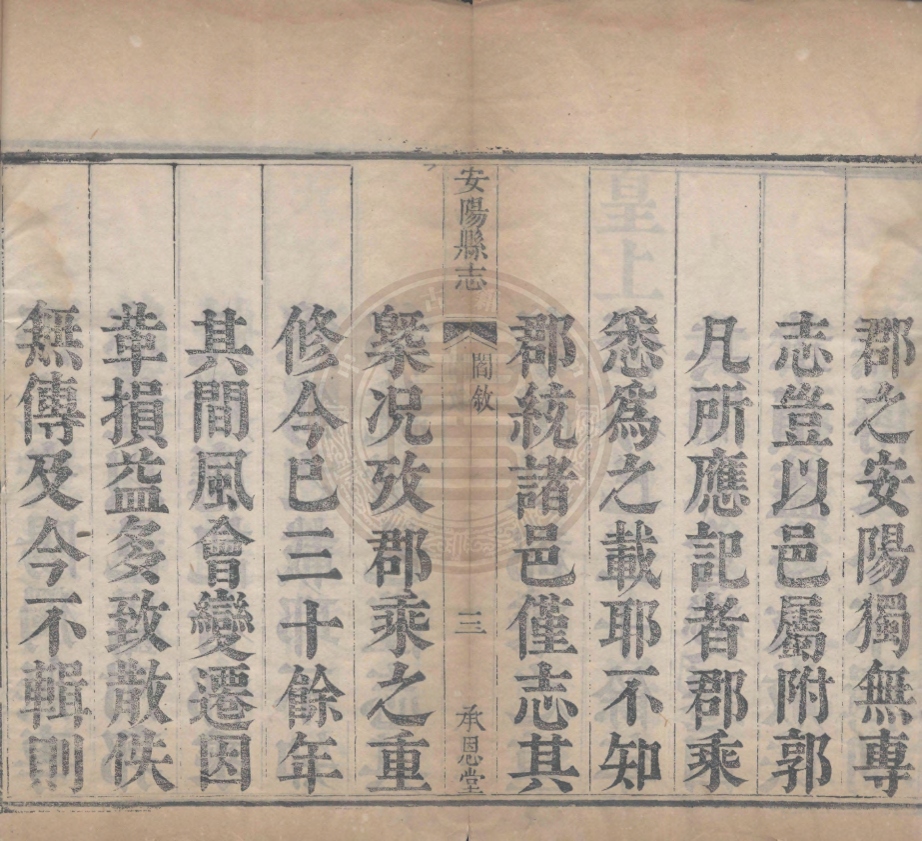 郡之安陽獨無專
志豈以邑屬附郭
凡所應記者郡乘
悉爲之載耶不知
郡統諸邑僅志其
安陽縣志
閻敘
三
承恩堂
槩况攷郡乘之重
修今巳三十餘年
其間風會變遷因
革損益多致散佚
無傳及今不輯則